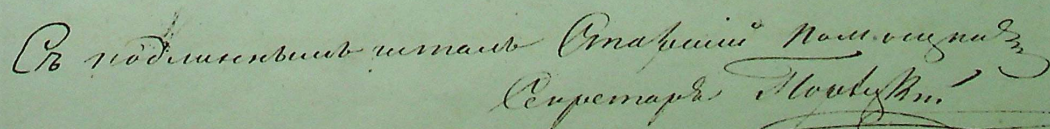 Съ подлиннымъ читалъ Старшій Помощникъ
Секретаря